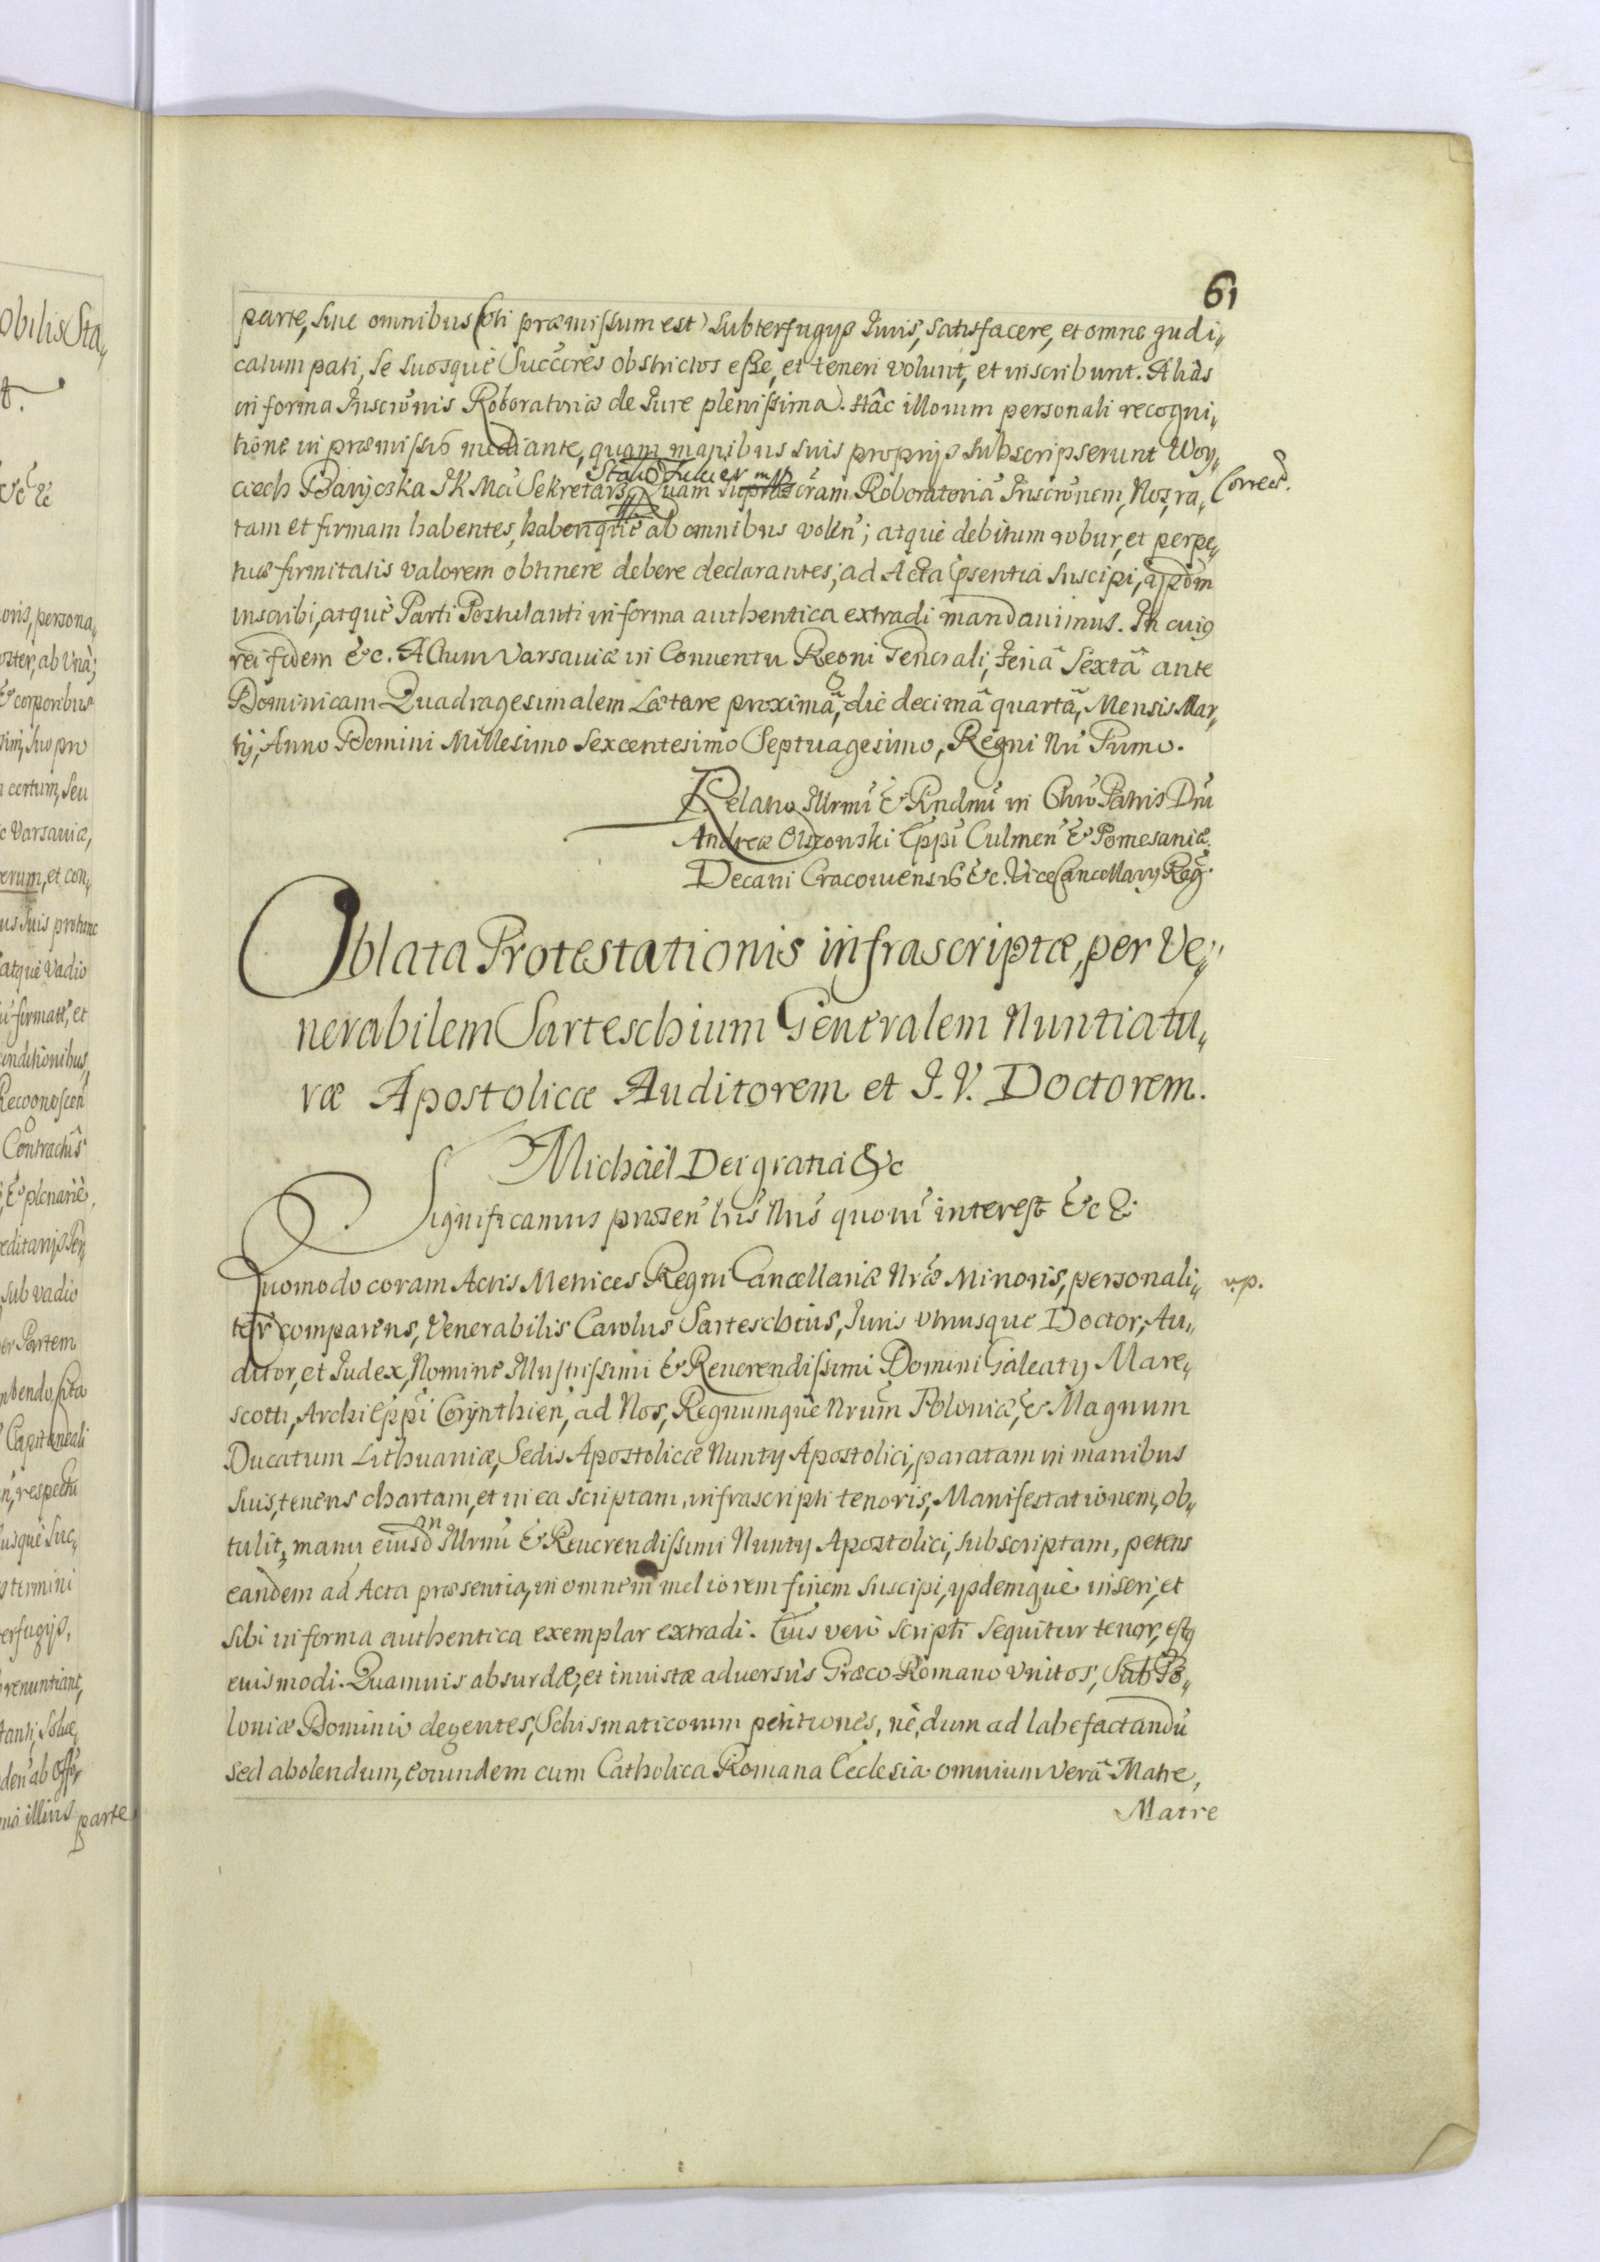 61
parte, sine omnibus (uti præmissum est) subterfugijs Iuris, satisfacere, et omne judi„
catum pati, se suosquè Succeres obstrictos esse, et teneri volunt, et inscribunt. Aliàs
in forma Inscrōnis Roboratoriæ de Iure plenissima. Hâc illorum personali recogni„
tione in præmissis mediante, quam manibus suis proprijs subscripserunt Woy„
ciech Baryczka JK Mci Sekretarz, Quam supra scram Roboratoriã Inscrōnem, Nos, ra„ Correct.
tam et firmam habentes, haberiquè ab omnibus volen̄; atquè debitum robur, et perpe„
tuæ firmitatis valorem obtinere debere declarantes, ad Acta p̄sentia suscipi, ijsdēm
inscribi, atquè Parti Postulanti in forma authentica extradi mandauimus. In cuiꝯ
rei fidem &c. Actum Varsauiæ in Conuentu Regni Generali, feriâ Sextâ ante
Dominicam Quadragesimalem Lætare proximâ, die decimâ quartâ, Mensis Mar„
tij, Anno Domini Millesimo Sexcentesimo Septuagesimo, Regni Nrī Primo.
Relatio Illrmi & Rndmi in Chrō Patris Dni
Andreæ Olszowski Eppi Culmen̄ & Pomesaniæ
Decani Cracouiensis &c. ViceCancellarij Reg.
Oblata Protestationis infrascriptæ, per Ve„
nerabilem Sarteschium Generalem Nuntiatu„
ræ Apostolicæ Auditorem et J. V. Doctorem.
Michaël Dei gratia &c
Significamus præsen̄ lris Nris quorū interest &c &.
Quomodo coram Actis Metrices Regni Cancellariæ Nræ Minoris, personali„ v.p.
tèr comparens, Venerabilis Carolus Sarteschius, Iuris Vtriusque Doctor, Au„
ditor, et Iudex, Nomine Illustrissimi & Reuerendissimi Domini Galeatij Mare„
scotti, ArchiEppi Corynthien̄, ad Nos, Regnumquè Nrūm Poloniæ, & Magnum
Ducatum Lithuaniæ, Sedis Apostolicæ Nuntij Apostolici, paratam in manibus
suis, tenens chartam, et in ea scriptam, infrascripti tenoris, Manifestationem, ob„
tulit, manu eiusdm Illrmi & Reuerendissimi Nuntij Apostolici, subscriptam, petens
eandem ad Acta præsentia, in omnem meliorem finem suscipi, ijsdemquè inseri, et
sibi in forma authentica exemplar extradi. Cuius verò scripti sequitur tenor, estꝗ
eiusmodi. Quamuis absurdæ, et iniustæ aduersùs Græco Romano Vnitos, Sub Po„
loniæ Dominio degentes, Schismaticorum petitiones, nè dum ad labefactandū
sed abolendum, eorundem cum Catholica Romana Ecclesia omnium verâ Matre,
Matre